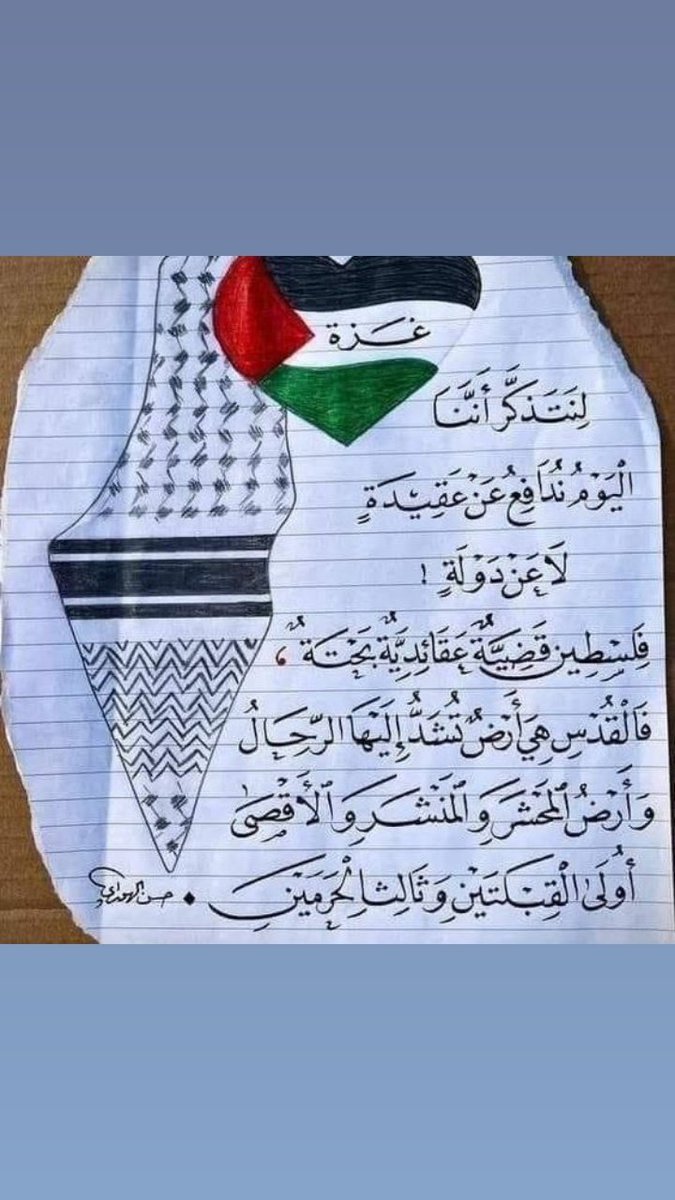 غزة
لِنَتَذَكَّر أَنَّنَا
الْيَوْمُ نُدَافِعُ عَنْ عَقِيْدَةٍ
لَا عَنْ دَوْلَةٍ !
فِلَسْطِين قَضِيَّةٌ عَقَائِدِيَّةٌ بَحْتَةٌ ،
فَالْقُدْسِ هِيَ أَرْضٌ تُشَدُّ إِلَيْهَا الرِّحَالُ
وَأَرْضُ المَحْشَرِ وَالمَنْشَرِ وَالأَقْصَىٰ
أُولَىٰ الْقِبْلَتَيْنِ وَثَالِثِ الْحَرَمَيْنِ